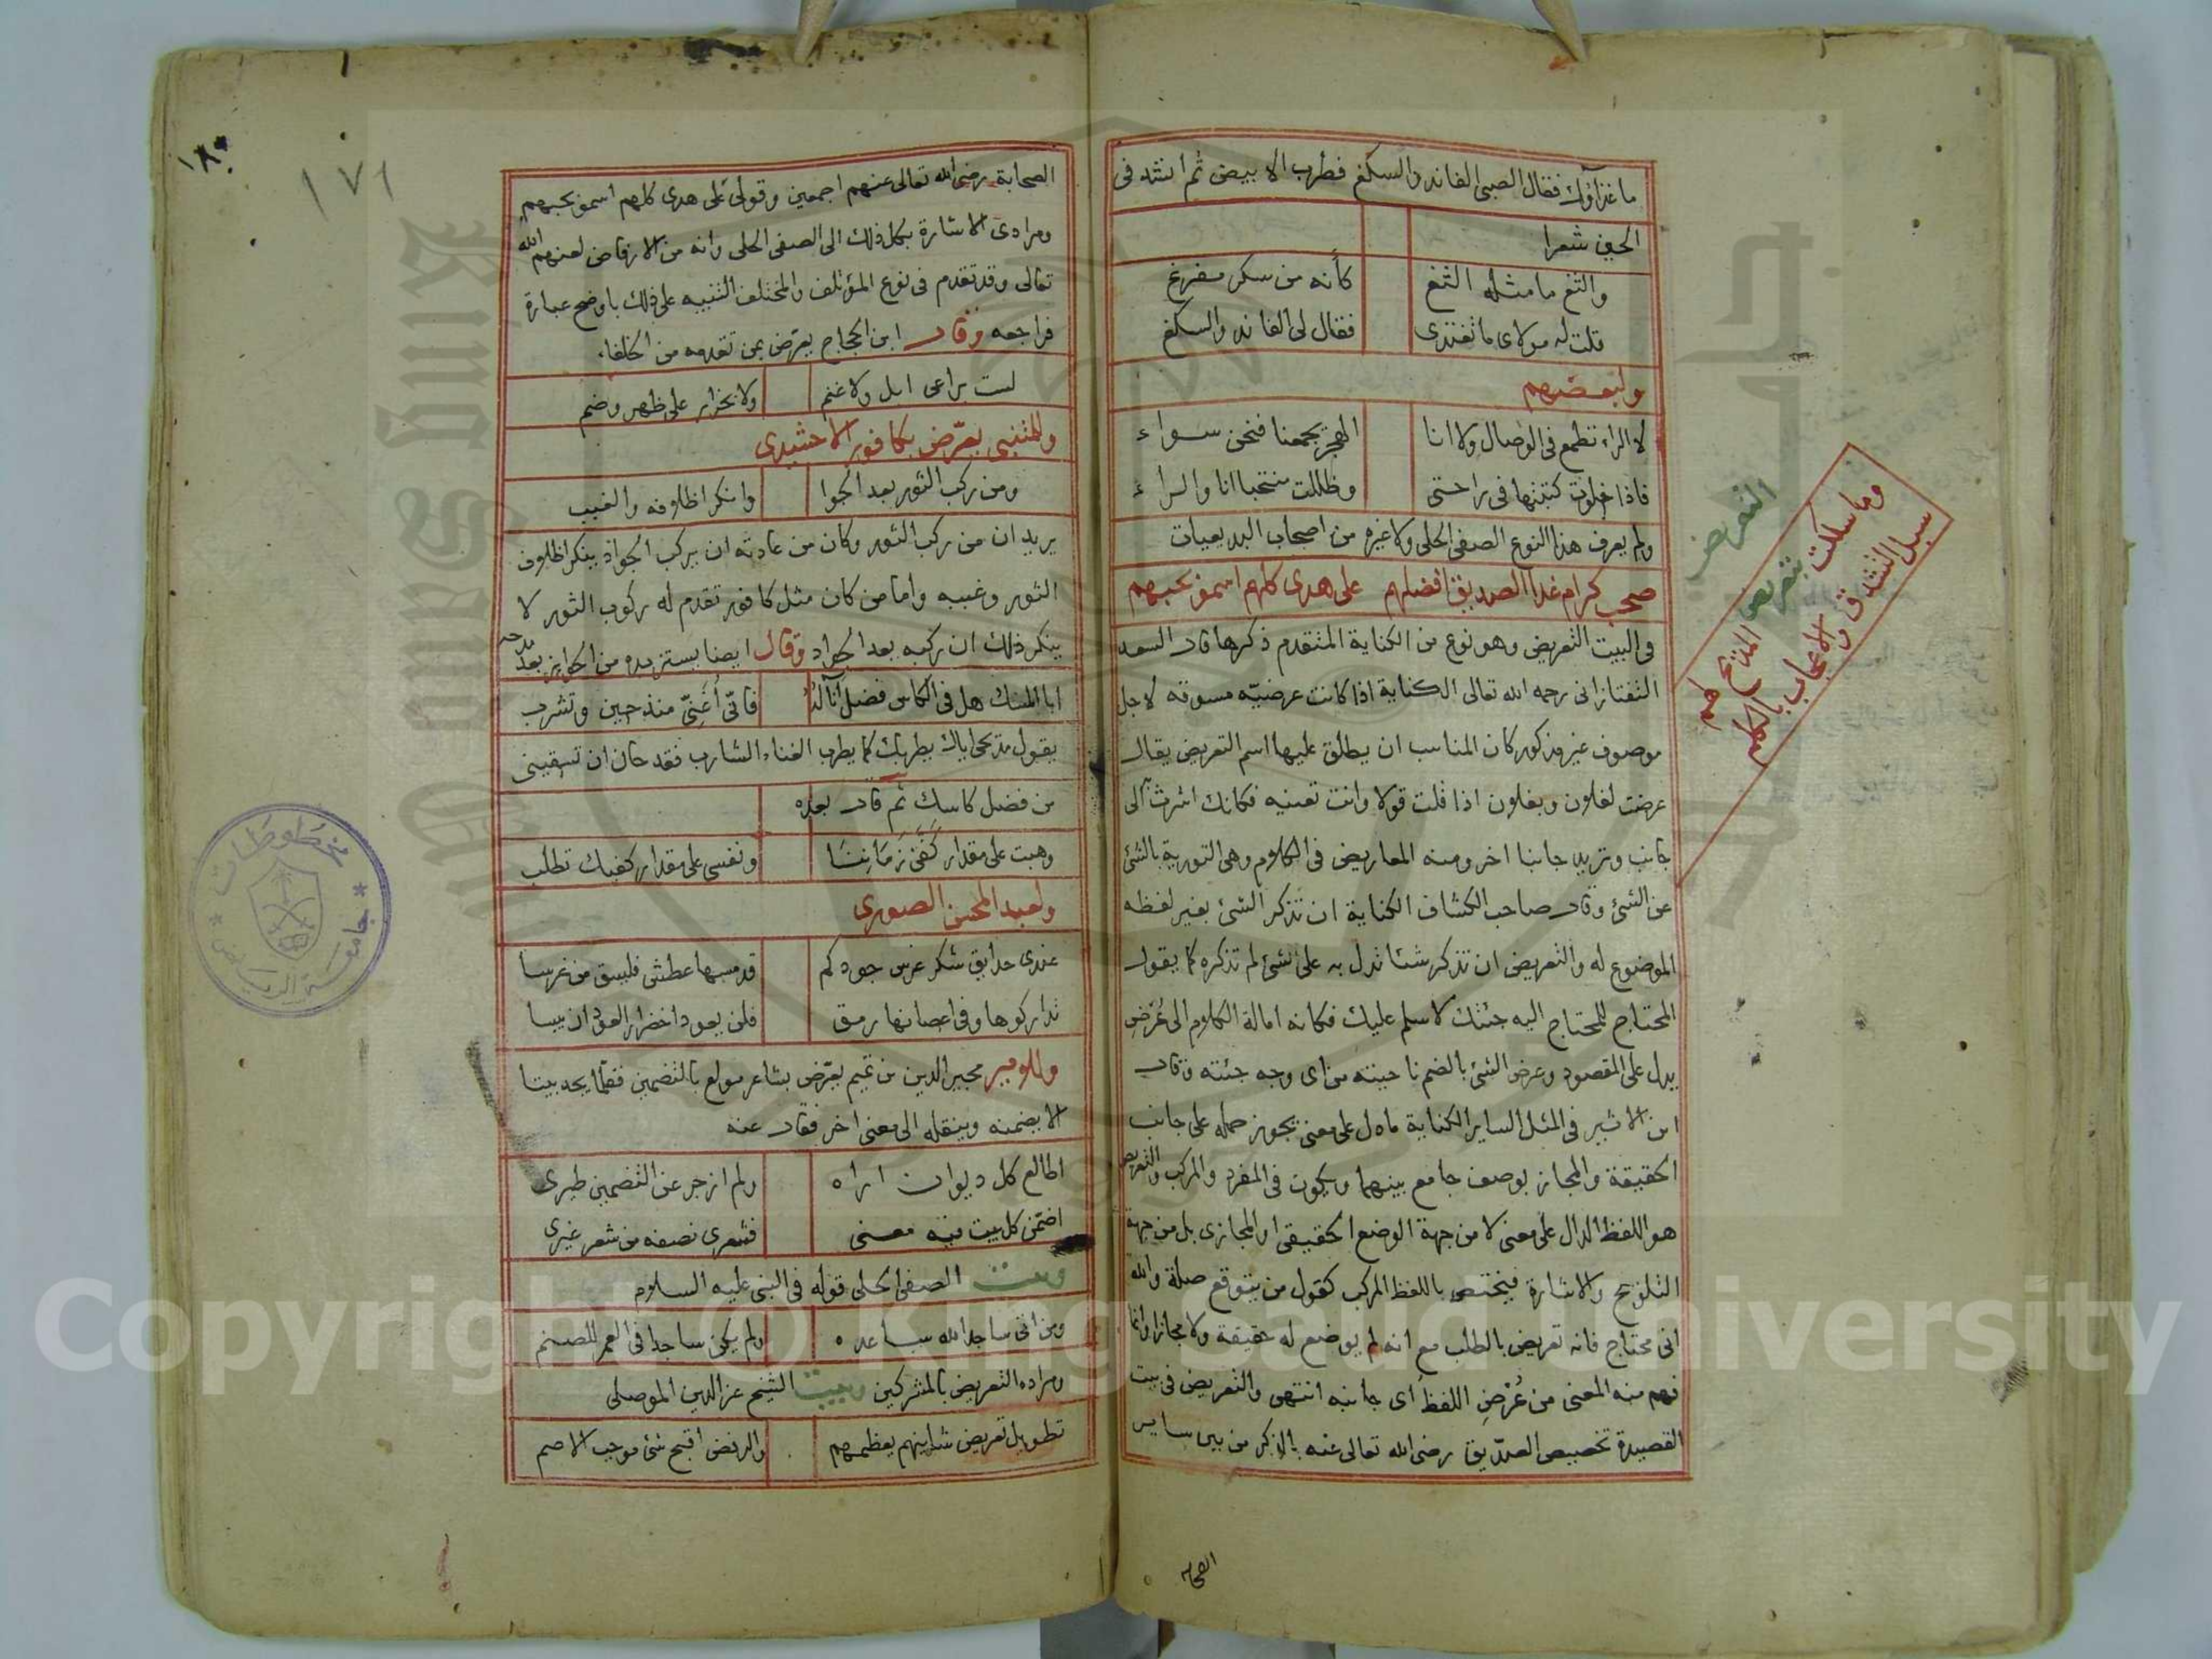 ما غذاؤك فقال الصبي الفاند والسكغ فطرب الابيض ثم انشد في
الحين شعرا
والثغ ما مثله الثغ كأنه من سكر مفرغ
قلت له مولاى ما تغتذى فقال لى الفاند والسكغ
ولبعضهم
لا الراء تطمع في الوصال ولا انا الهجر يجمعنا فنحن سواء
فاذا خلوت كتبتها في راحتى وظللت منتحبا انا والراء
ولم يعرف هذا النوع الصفى الحلى ولا غيره من اصحاب البديعيات
صحب كرام غدا الصديق افضلهم على هدى كلهم اسمو بحبهم
التعريض
وما سلكت بتعريض المديح لهم
سبل التشدق والاعجاب بالكلم
في البيت التعريض وهو نوع من الكناية المتقدم ذكرها قال السعد
التفتازانى رحمه الله تعالى الكناية اذا كانت عرضيّه مسوقه لاجل
موصوف غير مذكور كان المناسب ان يطلق عليها اسم التعريض يقال
عرضت لفلان وبفلان اذا قلت قولا وانت تعنيه فكانك اشرت الى
جانب وتريد جانبا اخر ومنه المعاريض في الكلام وهى التورية بالشئ
عن الشئ وقال صاحب الكشاف الكناية ان تذكر الشئ بغير لفظه
الموضوع له والتعريض ان تذكر شئا تدل به على شئ لم تذكره كما يقول
المحتاج للمحتاج اليه جئتك لاسلم عليك فكانه امالة الكلام الى عُرض
يدل على المقصود وعرض الشئ بالضم ناحيته من اى وجه جئته وقال
ابن الاثير في المثل الساير الكناية ما دل على معنى يجوز حمله على جانب
الحقيقة والمجاز بوصف جامع بينهما ويكون في المفرد والمركب والتعريض
هو اللفظ الدال على معنى لا من جهة الوضع الحقيقى او المجازى بل من جهة
التلويح والاشارة فيختص باللفظ المركب كقول من يتوقع صلة والله
انى محتاج فانه تعريض بالطلب مع انه لم يوضع له حقيقة ولا مجازا وانما
فهم منه المعنى من عُرْض اللفظ اى جانبه انتهى والتعريض في بيت
القصيدة تخصيص الصدّيق رضى الله تعالى عنه بالذكر من بين ساير
الصحابة
١٨٠
١٧١
الصحابة رضى الله تعالى عنهم اجمعين وقولى على هدى كلهم اسمو بحبهم
ومرادى الاشارة بكل ذلك الى الصفى الحلى وانه من الارفاض لعنهم الله
تعالى وقد تقدم في نوع المؤتلف والمختلف التنبيه على ذلك باوضح عبارة
فراجعه وقال ابن الحجاج يعرّض بمن تقدمه من الخلفاء
لست براعى ابل ولا غنم ولا بجزار على ظهر وضم
وللمتنبى يعرّض بكافور الاخشيدى
ومن ركب الثور بعد الجوا د انكر اظلافه والغبب
يريد ان من ركب الثور وكان من عادته ان يركب الجواد ينكر اظلاف
الثور وغببه واما من كان مثل كافور تقدم له ركوب الثور لا
ينكر ذلك ان ركبه بعد الجواد وقال ايضا يستزيده من الجوايز بعد مدحه
ابا المسك هل في الكاس فضل اناله فانّى اُغَنِّى منذ حين وتشرب
يقول مديحى اياك يطربك كما يطرب الغناء الشارب فقد حان ان تسقينى
من فضل كاسك ثم قال بعده
وهبت على مقدار كَفَّى زَمَانِنَا ونفسى على مقدار كفيك تطلب
ولعبد المحسن الصورى
عندى حدايق شكر غرس جودكم قد مسها عطش فليسق من غرسا
تداركوها وفي اغصانها رمق فلن يعود اخضرار العود ان يبسا
وللامير مجير الدين بن تميم يعرّض بشاعر مولع بالتضمين فقلما يجد بيتا
الا يضمنه وينقله الى معنى اخر فقال عنه
اطالع كل ديوان اراه ولم ازجر عن التضمين طيرى
اضمّن كل بيت فيه معنى فشعرى نصفه من شعر غيرى
وبيت الصفى الحلى قوله في النبى عليه السلام
ومن اتى ساجدا لله ساعده ولم يكن ساجدا في العمر للصنم
ومراده التعريض بالمشركين وبيت الشيخ عز الدين الموصلى
تطويل تعريض شانيهم يعظمهم والرفض اقبح شئ موجب الاصم
مخطوطات
جامعة الرياض
Copyright © King Saud University
King Saud University